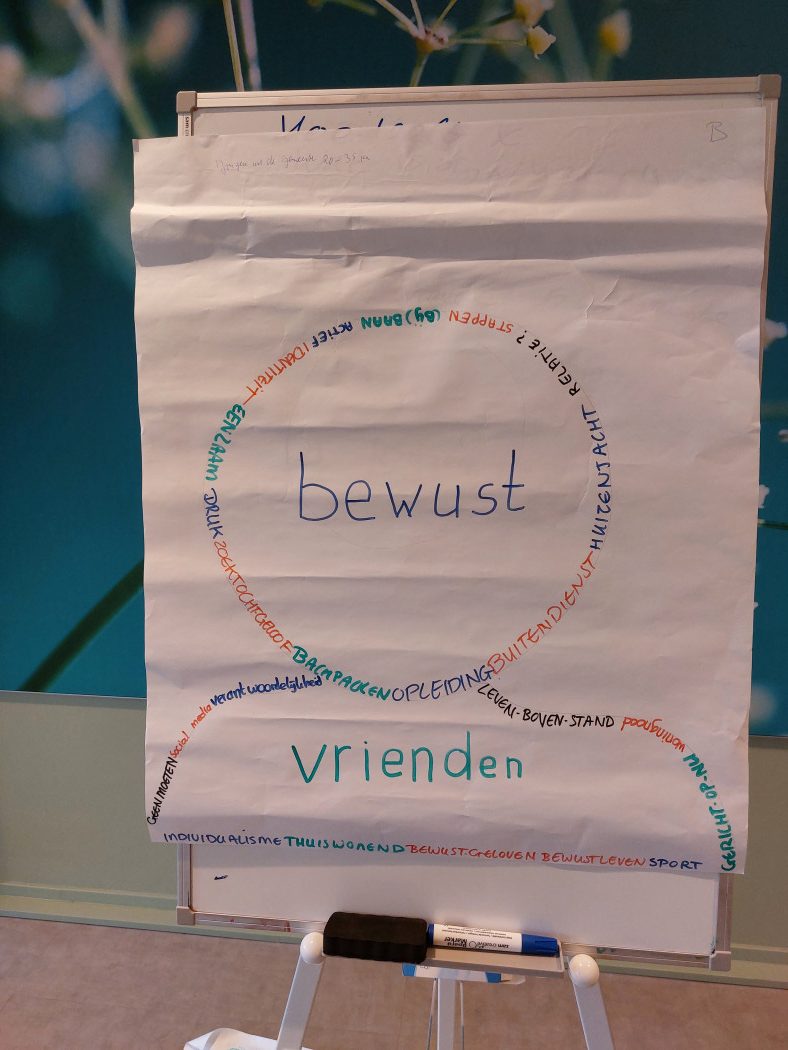 B
Jongeren uit de gemeente 20-35 jr
STAPPEN (BIJ)BAAN ACTIEF IDENTITEIT EENZAAM DRUK ZOEKTOCHT GELOOF BACKPACKEN OPLEIDING BUITENDIENST HUIZENJACHT RELATIE?
bewust
GEEN MOETEN social media verantwoordelijkheid
LEVEN-BOVEN-STAND woningnood GERICHT-OP-NU
vrienden
INDIVIDUALISME THUISWONEND BEWUST-GELOVEN BEWUST LEVEN SPORT